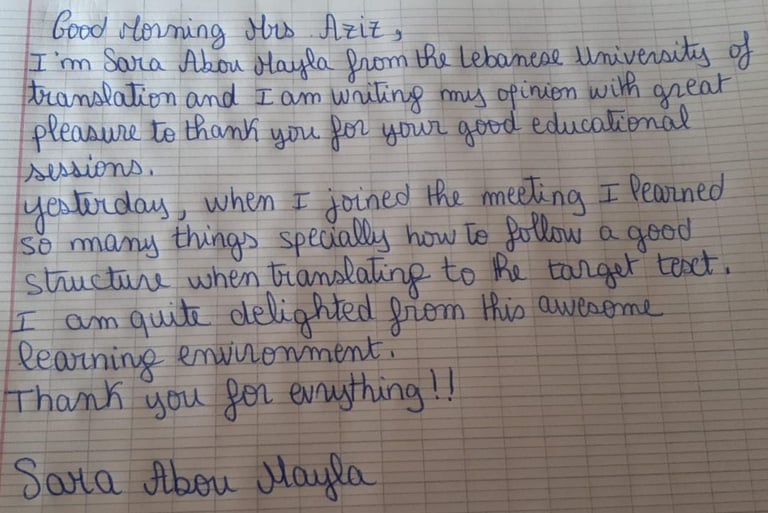 Good Morning Mrs Aziz,
I'm Sara Abou Hayla from the Lebanese University of
translation and I am writing my opinion with great
pleasure to thank you for your good educational
sessions.
yesterday, when I joined the meeting I learned
so many things specially how to follow a good
structure when translating to the target text.
I am quite delighted from this awesome
learning environment.
Thank you for everything!!
Sara Abou Hayla